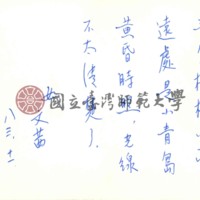 遠處是小青島
黃昏時，光線
不太清楚）
文茜
八三、十一
國立臺灣師範大學